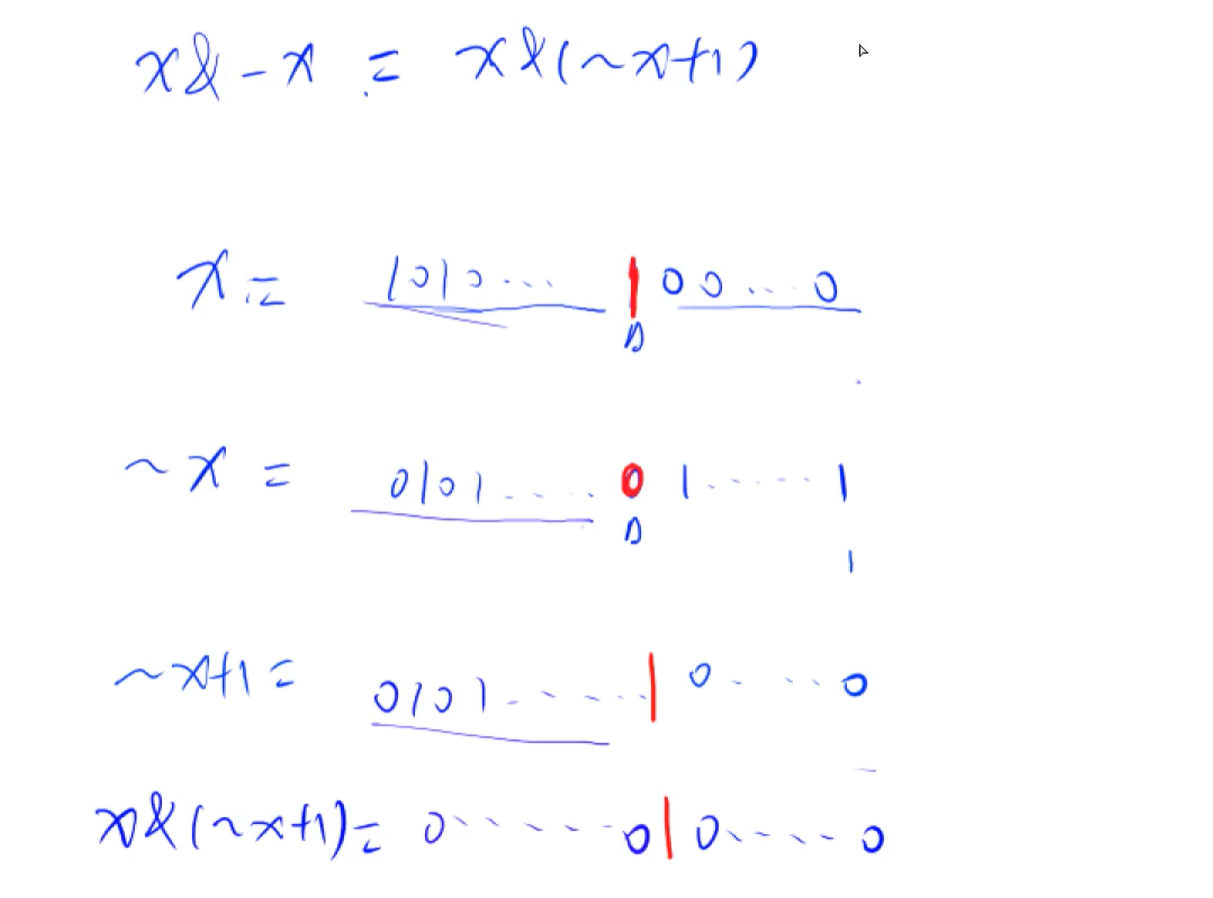 x&-x = x&(~x+1)
x= 1010... 100...0
~x = 0101.... 01.....1
1
~x+1= 0101.......10....0
x&(~x+1)= 0......010.....0